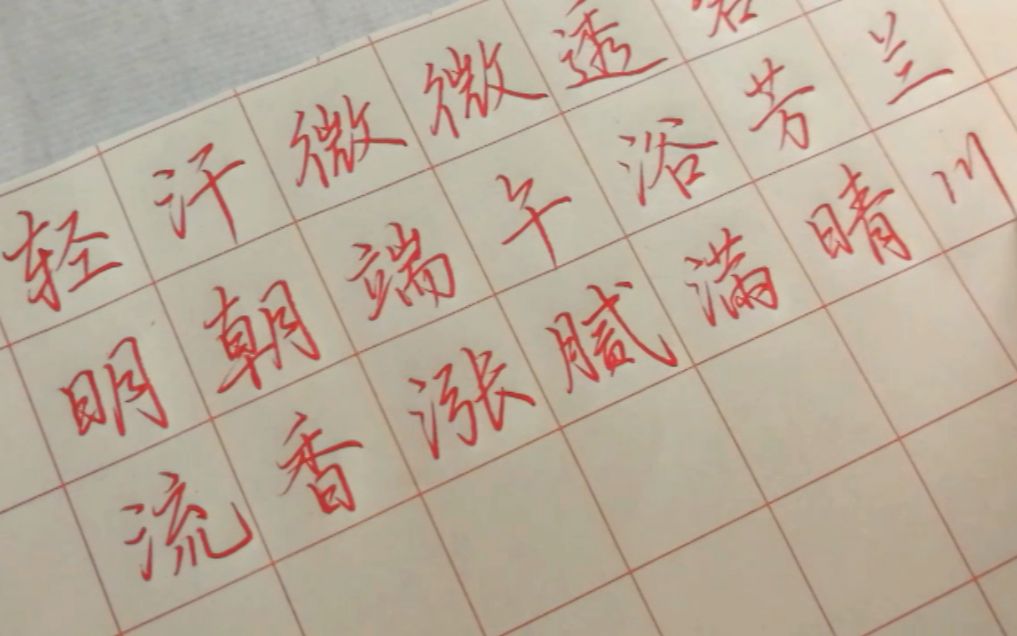 轻汗微微透
明朝端午浴芳兰
流香涨腻满晴川